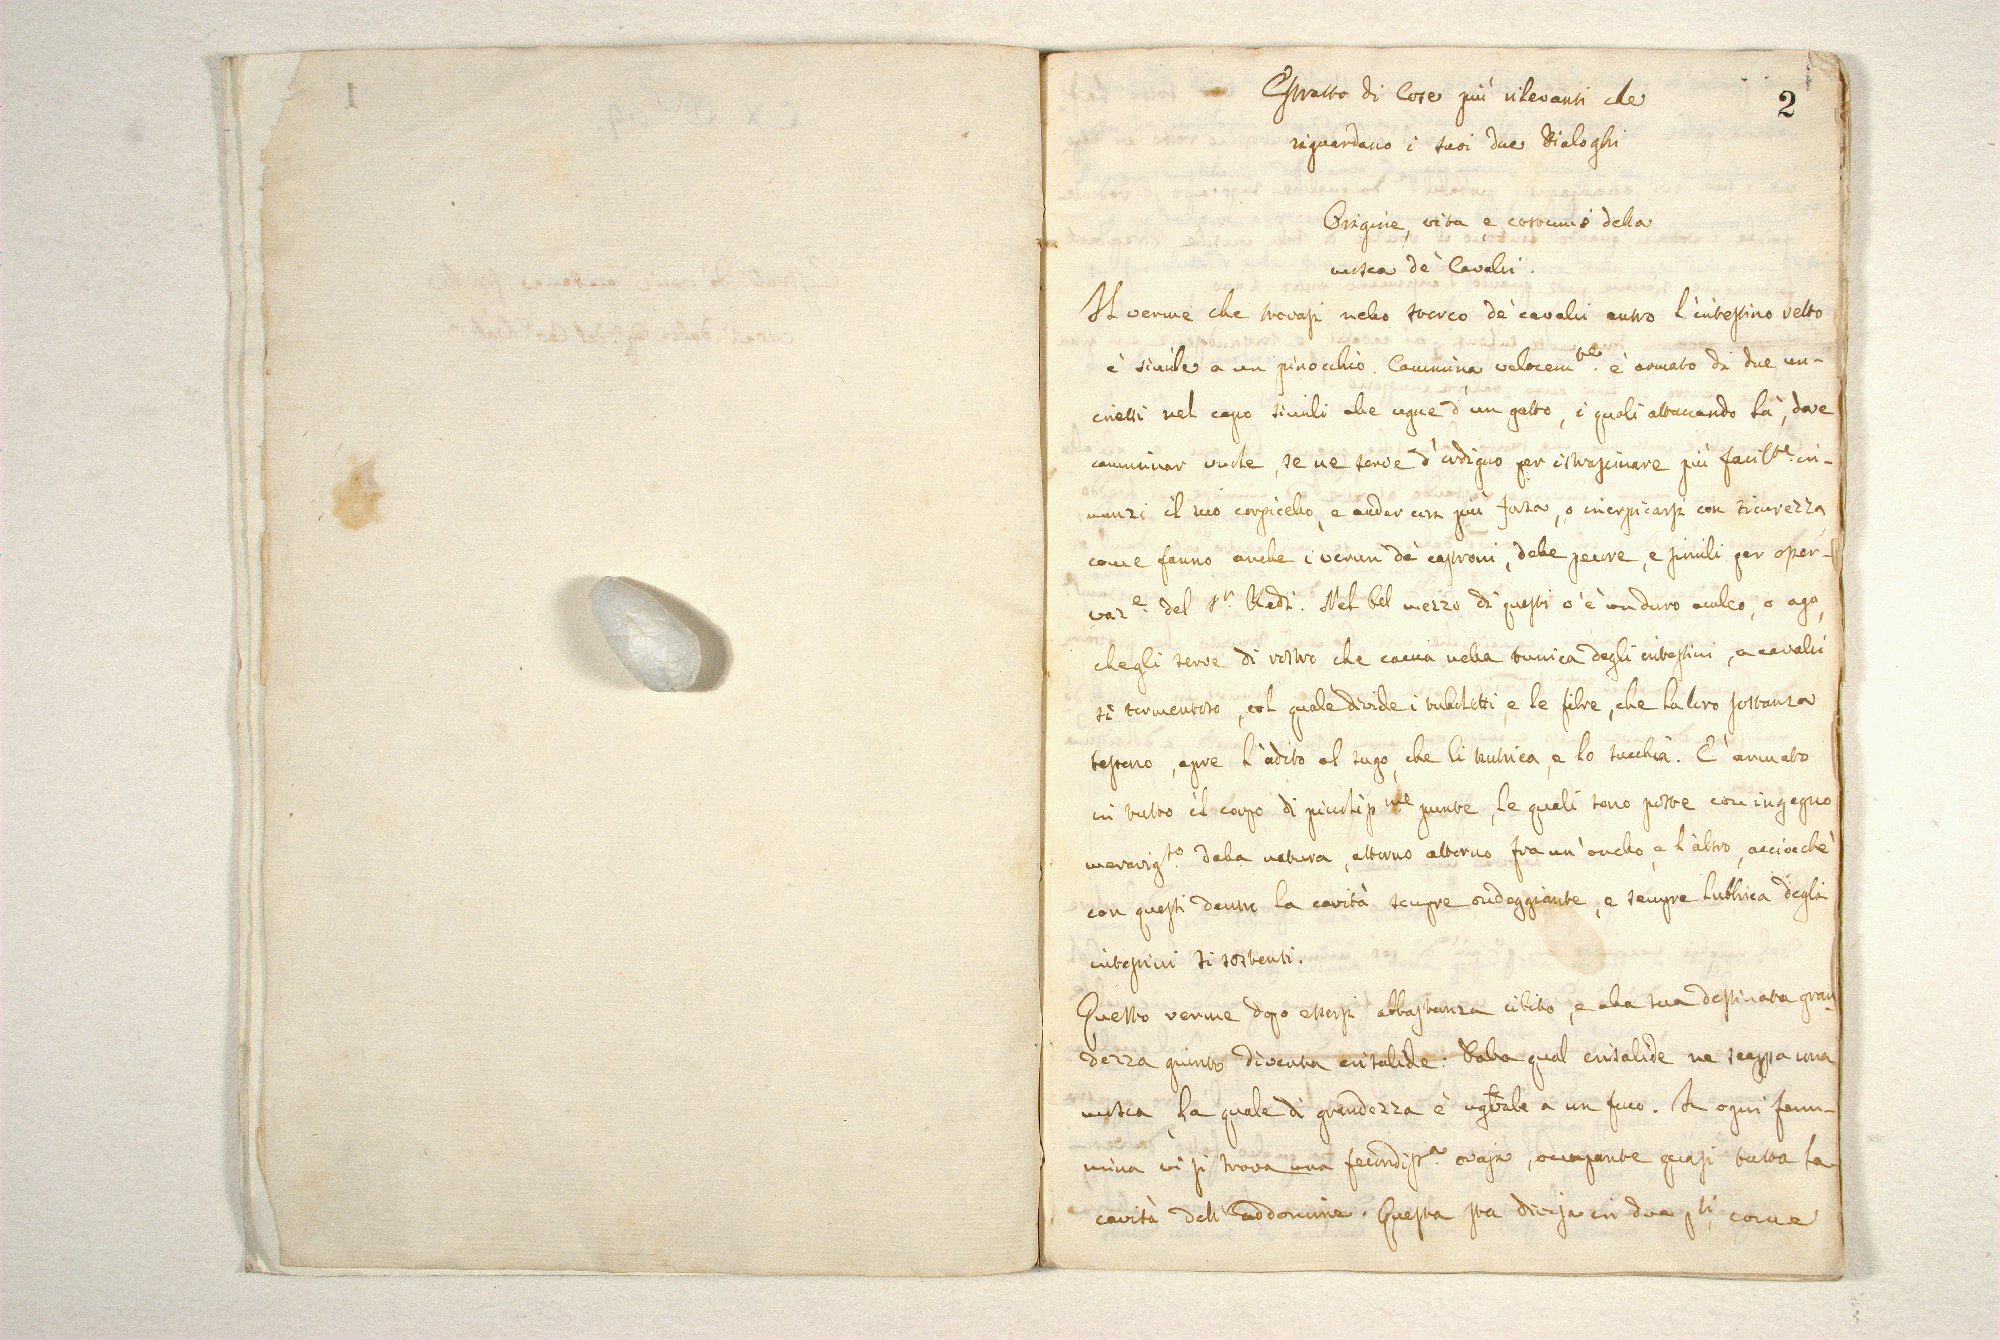 2
Estratto di Cose più rilevanti che
riguardano i suoi due Dialoghi
Origine, vita e costumi della
mosca de' Cavalli.
Il verme che trovasi nello sterco de' cavalli entro l'intestino retto
è simile a un pinocchio. Cammina velocemte. è armato di due un-
cinetti nel capo simili alle ugne d'un gatto, i quali attaccando là, dove
camminar vuole, se ne serve d'ordigno per istrascinare più facilte. in-
nanzi il suo corpicello, e andar con più forza, o inerpicarsi con sicurezza,
come fanno anche i vermi de' caproni, delle pecore, e simili per osser-
vaze. del Sr. Redi. Nel bel mezzo di questi v'è un duro aculeo, o ago,
che gli serve di rostro che caccia nella tunica degli intestini, a cavalli
sì tormentoso, col quale divide i tuboletti, e le fibre, che la loro sostanza
tessono, apre l'adito al sugo, che li nutrica, e lo succhia. E' armato
in tutto il corpo di piccolissme punte, le quali sono poste con ingegno
meravigso. dalla natura, attorno attorno fra un' anello, e l'altro, acciocchè
con questi dentro la cavità sempre ondeggiante, e sempre lubbrica degli
intestini si sostenti.
Questo verme dopo essersi abbastanza cibato, e alla sua destinata gran-
dezza giunto diventa crisalide: Dalla qual crisalide ne scappa una
mosca, la quale di grandezza è uguale a un fuco. In ogni fem-
mina vi si trova una fecondissa. ovaja, occupante quasi tutta la
cavità dell'addomine. Questa sta divisa in due pti, come